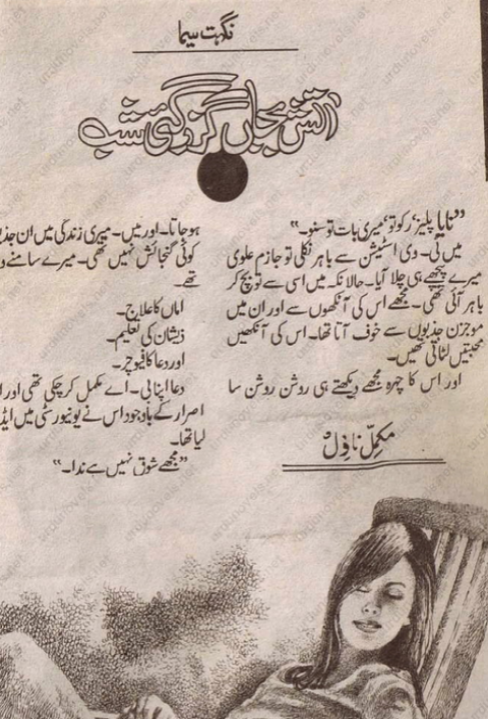 نگہت سیما
آتش بجاں گزر گئی شب
”نایا پلیز، رکو تو، میری بات تو سنو۔“
میں ٹی۔ وی اسٹیشن سے باہر نکلی تو جازم علوی
میرے پیچھے ہی چلا آیا۔ حالانکہ میں اسی سے تو بچ کر
باہر آئی تھی۔ مجھے اس کی آنکھوں سے اور ان میں
موجزن جذبوں سے خوف آتا تھا۔ اس کی آنکھیں
محبتیں لٹاتی تھیں۔
اور اس کا چہرہ مجھے دیکھتے ہی روشن روشن سا
مکمل ناول
ہو جاتا۔ اور میں۔ میری زندگی میں ان
کوئی گنجائش نہیں تھی۔ میرے سامنے
تھے۔
اماں کا علاج۔
ذیشان کی تعلیم۔
اور دعا کا فیوچر۔
دعا اپنا بی۔ اے مکمل کر چکی تھی اور
اصرار کے باوجود اس نے یونیورسٹی میں
لیا تھا۔
”مجھے شوق نہیں ہے ندا۔“